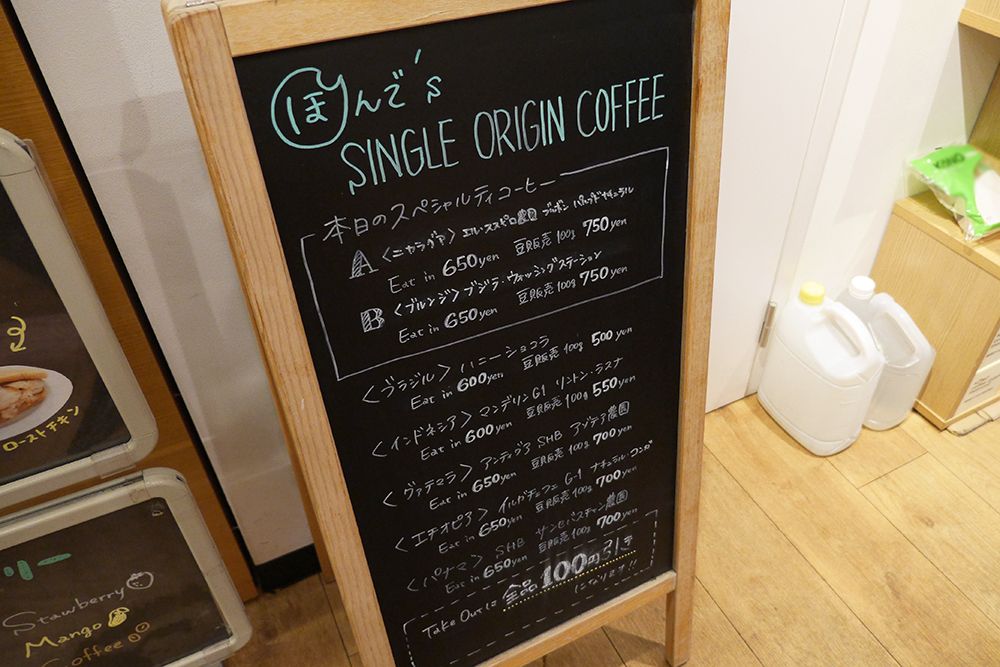 ほんで's
SINGLE ORIGIN COFFEE
本日のスペシャルティコーヒー
A <ニカラグア> エル・ススピロ農園 ブルボン パルプドナチュラル
Eat in 650yen 豆販売 100g 750yen
B <ブルンジ> ブジラ・ウォッシングステーション
Eat in 650yen 豆販売 100g 750yen
<ブラジル> ハニーショコラ
Eat in 600yen 豆販売 100g 500yen
<インドネシア> マンデリンG1 リントン・ラスナ
Eat in 600yen 豆販売 100g 550yen
<グァテマラ> アンティグア SHB アゾテア農園
Eat in 650yen 豆販売 100g 700yen
<エチオピア> イルガチェフェ G-1 ナチュラル・コンガ
Eat in 650yen 豆販売 100g 700yen
<パナマ> SHB サンセバスチャン農園
Eat in 650yen 豆販売 100g 700yen
Take Outは 全品 100の引き
になります!!
ローストチキン
リー
Stawberry
Mango
Coffee